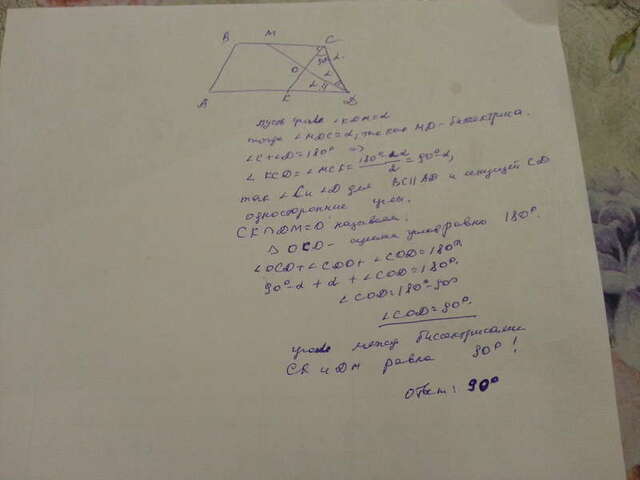 B M C
90-α
O α
α
A K D
пусть угол ∠KDM=α
тогда ∠MDC=α, так как MD-биссектриса.
∠C+∠D=180° =>
∠KCD=∠MCK=(180°-2α)/2=90°-α,
так ∠C и ∠D для BC||AD и секущей CD
односторонние углы.
CK∩DM=O назовем.
△OCD- сумма углов равно 180°.
∠OCD+∠CDO+∠COD=180°
90°-α+α+∠COD=180°.
∠COD=180°-90°
∠COD=90°.
угол между биссектрисами
CK и DM равна 90°!
Ответ: 90°